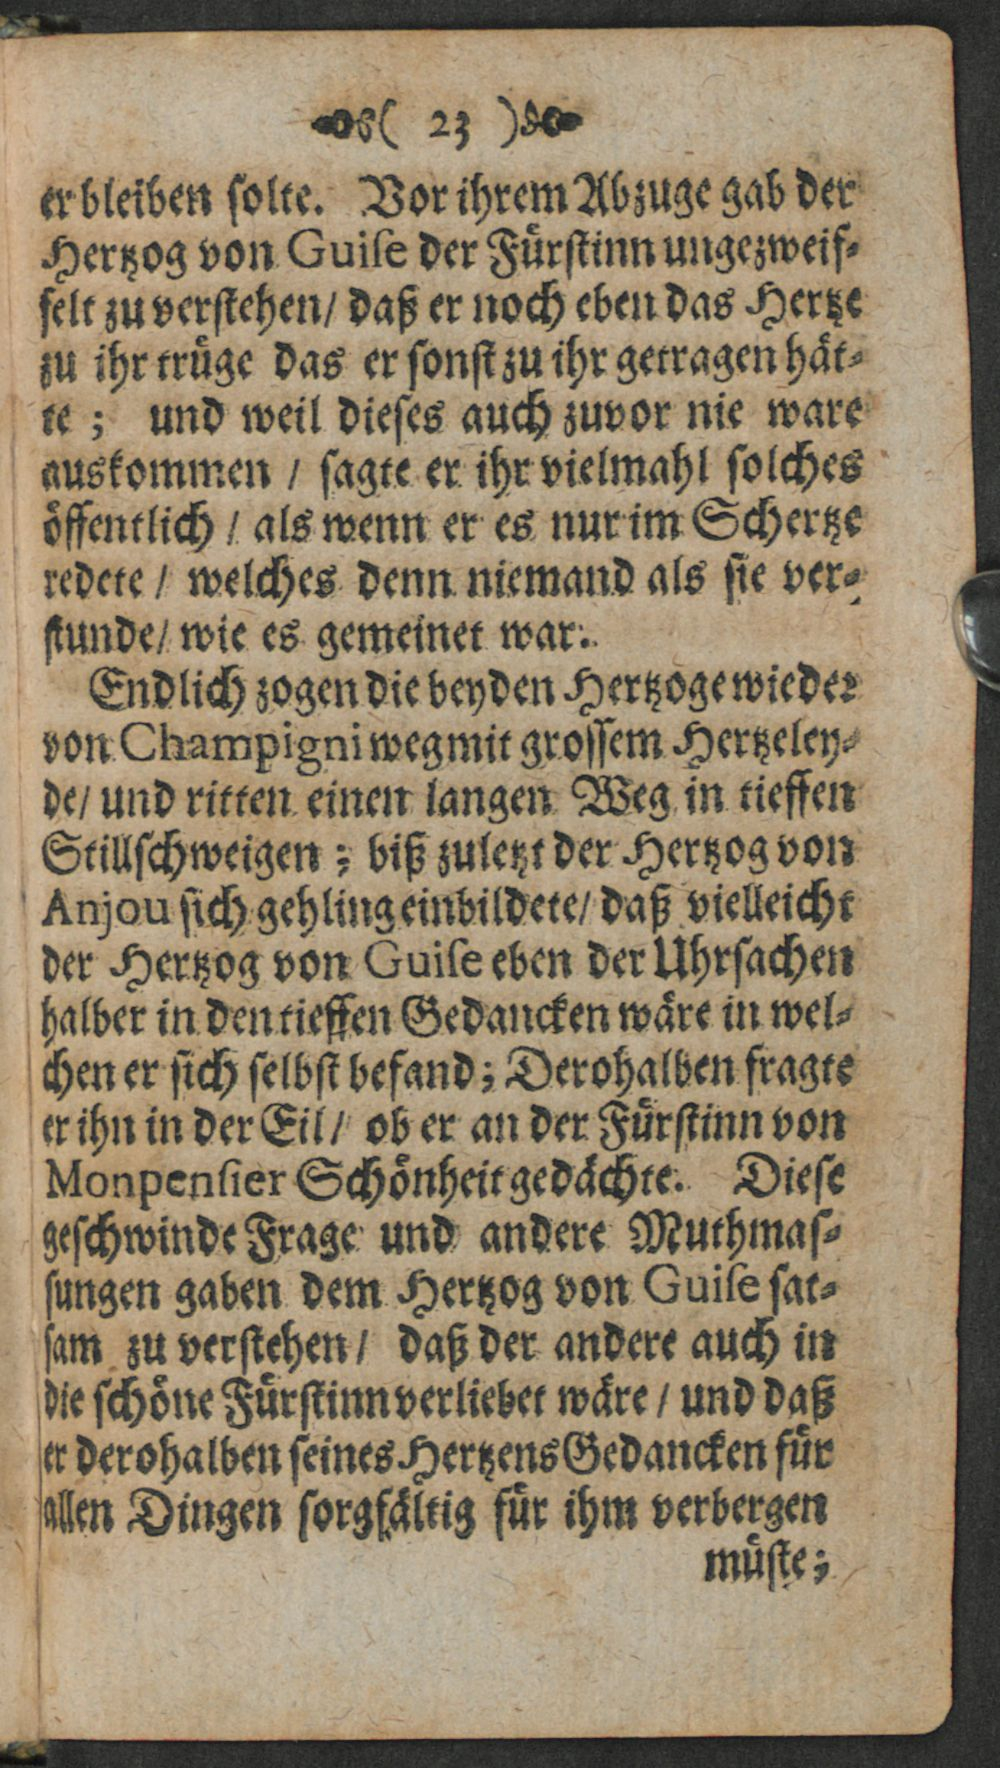 ( 23 )
er bleiben solte. Vor ihrem Abzuge gab der
Hertzog von Guise der Fürstinn ungezweif-
felt zu verstehen/ daß er noch eben das Hertze
zu ihr trüge das er sonst zu ihr getragen hät-
te ; und weil dieses auch zuvor nie ware
auskommen / sagte er ihr vielmahl solches
öffentlich / als wenn er es nur im Schertze
redete / welches denn niemand als sie ver-
stunde/ wie es gemeinet war.
Endlich zogen die beyden Hertzoge wieder
von Champigni weg mit grossem Hertzeley-
de/ und ritten einen langen Weg in tieffen
Stillschweigen ; biß zuletzt der Hertzog von
Anjou sich gehling einbildete/ daß vielleicht
der Hertzog von Guise eben der Uhrsachen
halber in den tieffen Gedancken wäre in wel-
chen er sich selbst befand; Derohalben fragte
er ihn in der Eil/ ob er an der Fürstinn von
Monpensier Schönheit gedächte. Diese
geschwinde Frage und andere Muthmas-
sungen gaben dem Hertzog von Guise sat-
sam zu verstehen / daß der andere auch in
die schöne Fürstinn verliebet wäre / und daß
er derohalben seines Hertzens Gedancken für
allen Dingen sorgfältig für ihm verbergen
müste;